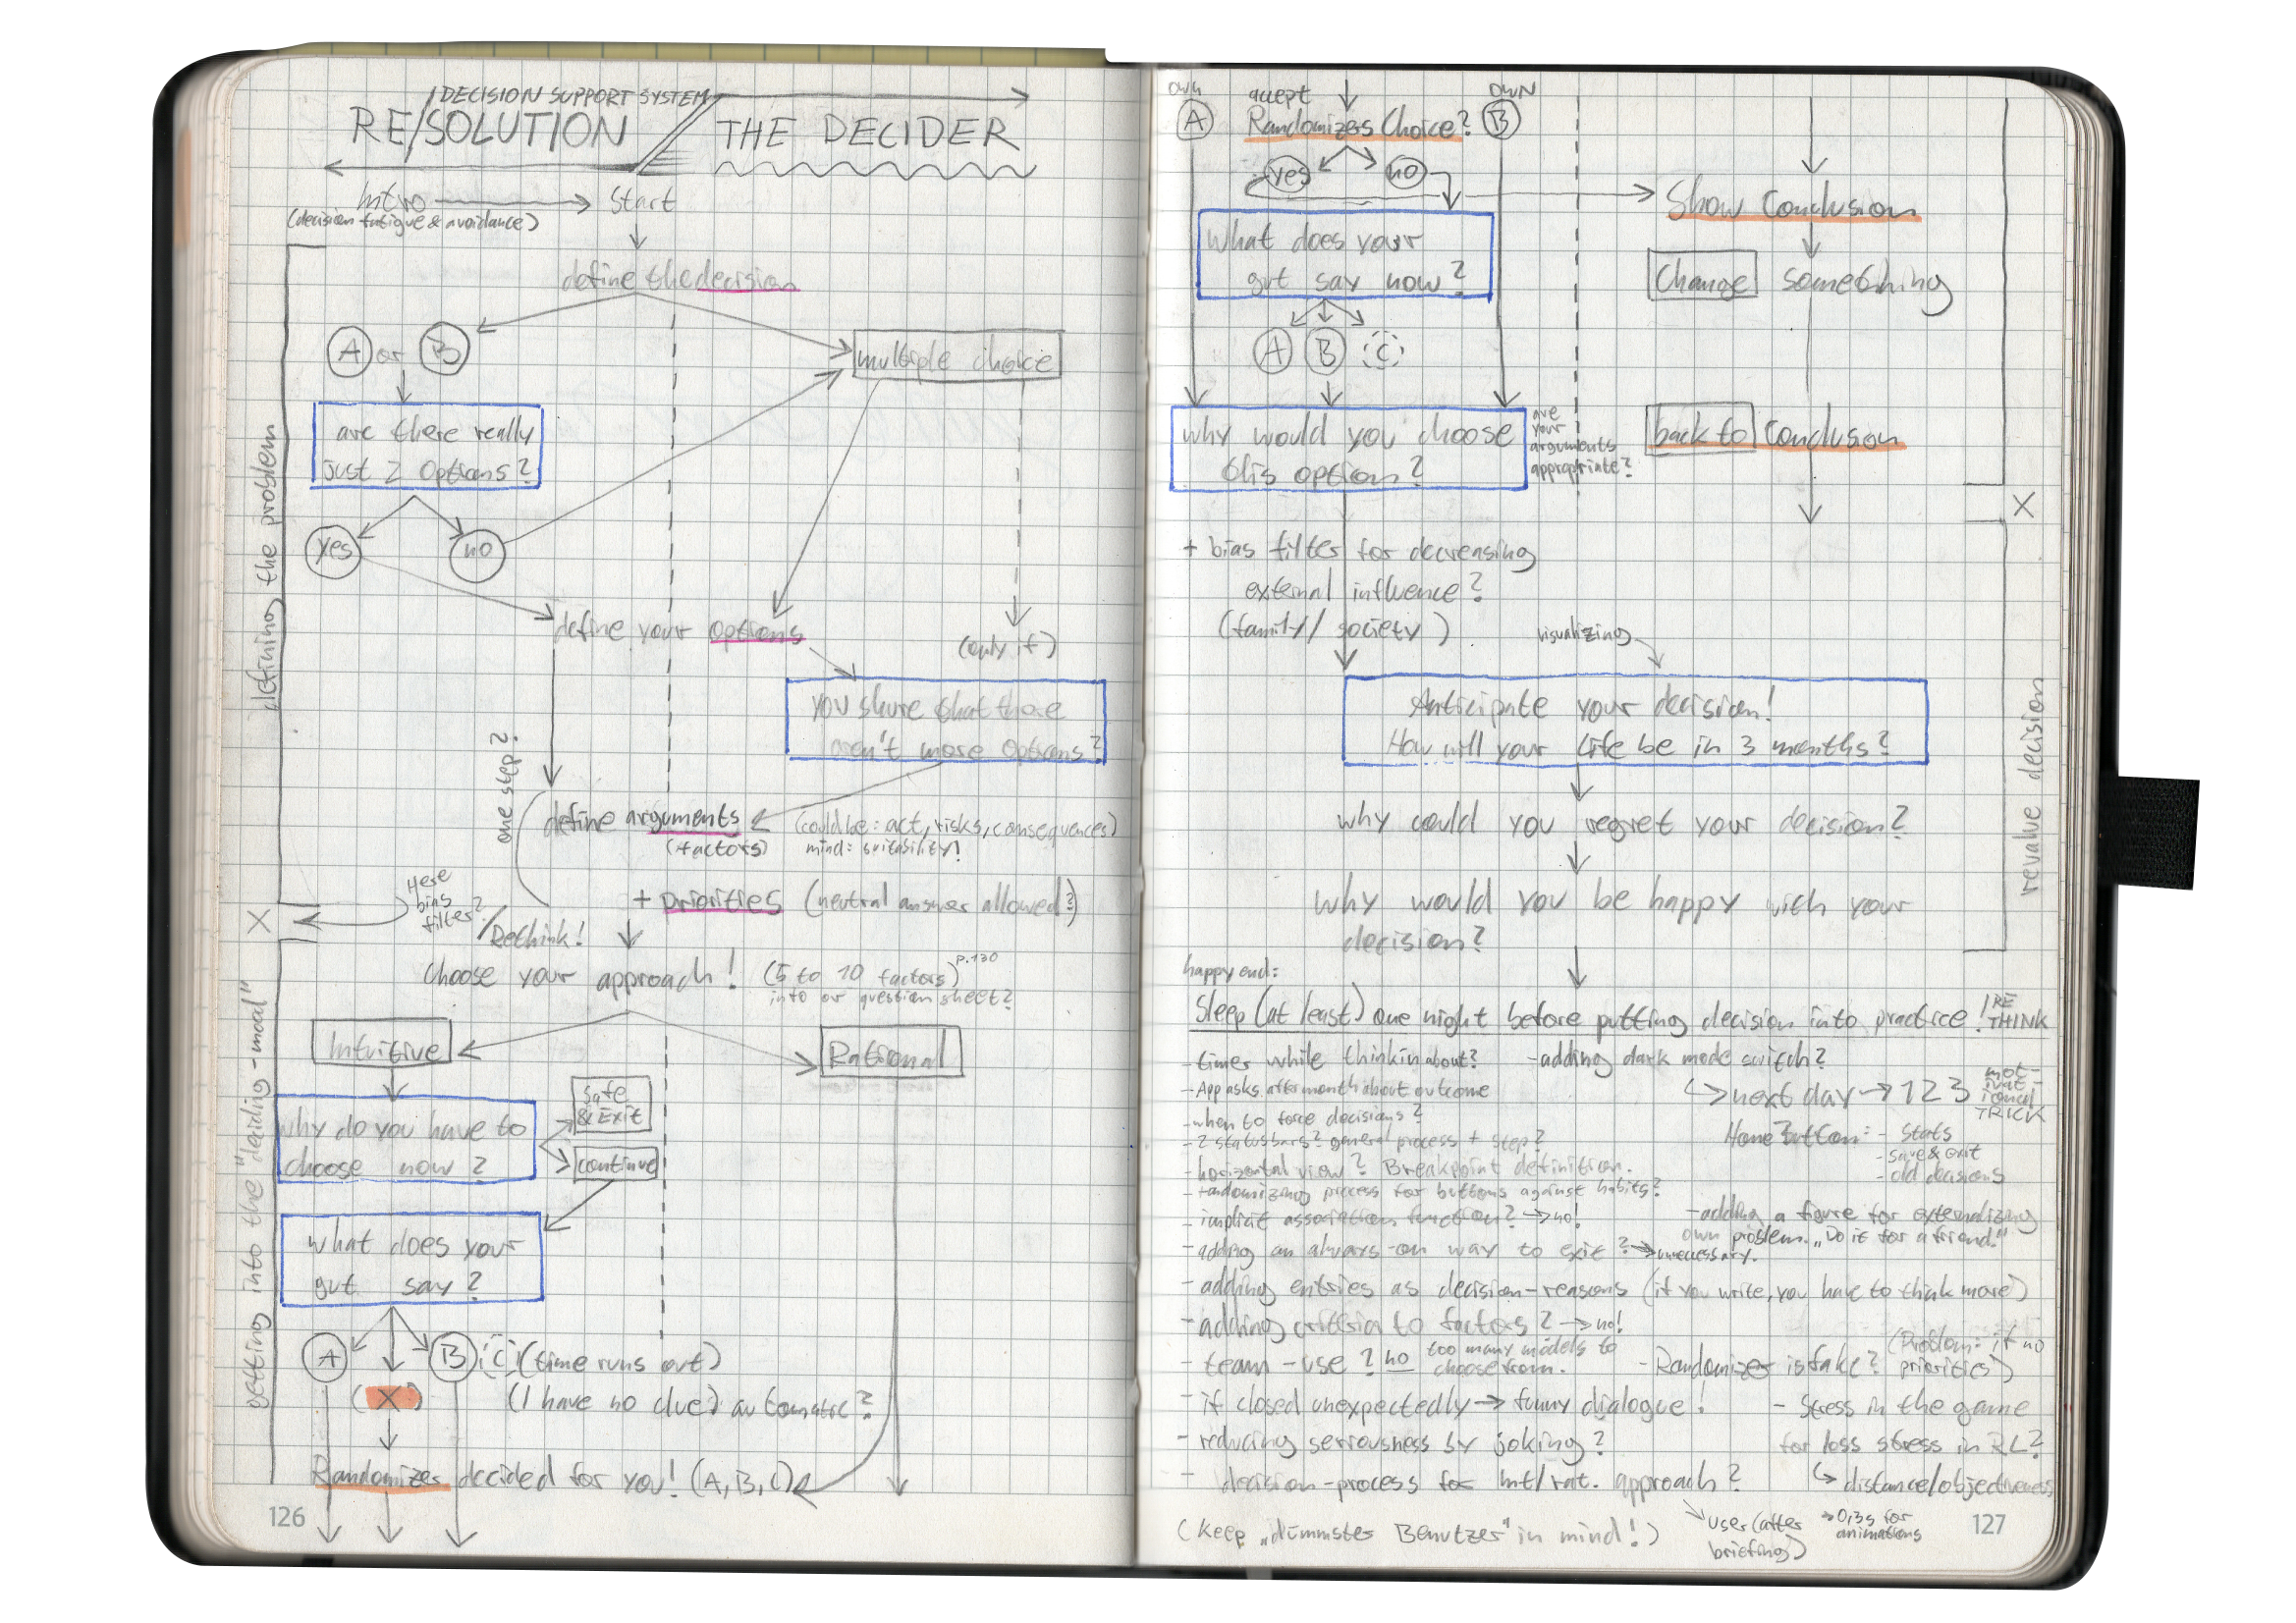 /DECISION SUPPORT SYSTEM
RE/SOLUTION
THE DECIDER
Intro
start
(decision fatigue & avoidance)
define the decision
A or B
multiple choice
are there really
just 2 options?
yes
no
defining the problem
define your options
(only if)
you shure that there
aren't more options?
one step?
define arguments
(factors)
(could be: act, risks, consequences)
mind: suitability!
+ priorities (neutral answer allowed?)
Here
bias
filter?
/Rethink!
X
choose your approach! (5 to 10 factors) p.130
into or question sheet?
getting into the "deciding-mood"
Intuitive
Rational
why do you have to
choose now?
Safe
& Exit
continue
what does your
gut say?
A
B
C
(time runs out)
(X)
(I have no clue) automatic?
Randomizer decided for you! (A, B, C)
126
own
A
accept
Randomizers Choice?
own
B
yes
no
Show Conclusion
what does your
gut say now?
Change something
A
B
C
why would you choose
this option?
are
your
arguments
appropriate?
back to conclusion
X
+ bias filter for decreasing
external influence?
(family/society)
visualizing
Anticipate your decision!
How will your life be in 3 months?
revalue decision
why could you regret your decision?
why would you be happy with your
decision?
happy end:
Sleep (at least) one night before putting decision into practice!
/RE
THINK
- timer while thinkin about?
- adding dark mode switch?
- App asks after month about outcome
next day → 123
mot-
ivat-
ional
TRICK
- when to force decisions?
- 2 statusbars? general process + step?
Home Button: - Stats
- save & exit
- old decisions
- horizontal view? Breakpoint definition.
- randomizing process for buttons against habits?
- implicit association function? → no!
- adding a figure for externalizing
own problem. „Do it for a friend."
- adding an always-on way to exit? → unnecessary.
- adding entries as decision-reasons (if you write, you have to think more)
- adding critisia to factors? → no!
- team-use? no too many models to
choose from.
- Randomizer is fake?
(Problem: if no
priorities)
- if closed unexpectedly → funny dialogue!
- Stress in the game
for loss stress in RL?
- reducing serriousness by joking?
↳ distance/objectiveness
- decision-process for Int/rat. approach?
(keep „dümmster Benutzer" in mind!)
user (after
briefing)
→ 0,3s for
animations
127